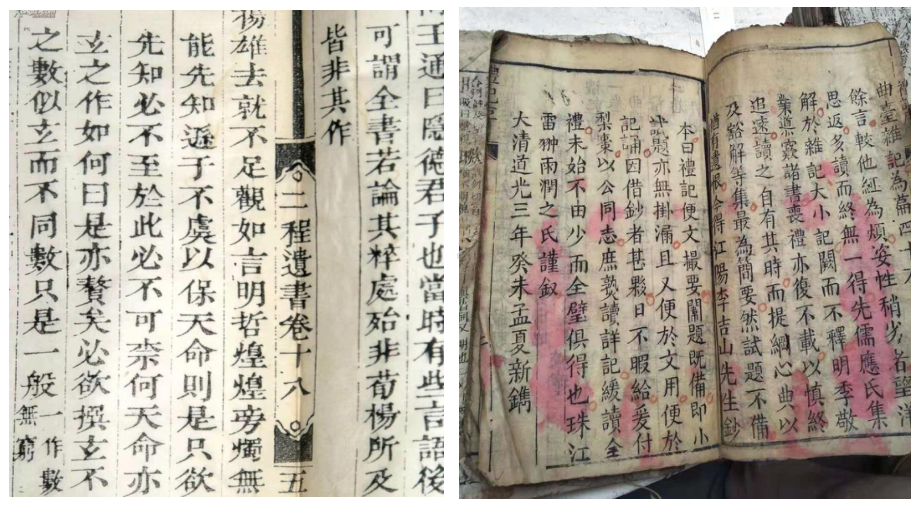 王通曰隱德君子也當時有些言語後
可謂全書若論其粹處殆非荀楊所及
皆非其作
二程遺書卷十八
五
楊雄去就不足觀如言明哲煌煌旁燭無
能先知遜于不虞以保天命則是只欲
先知必不至於此必不可柰何天命亦
玄之作如何曰是亦贅矣必欲撰玄不
之數似玄而不同數只是一般一作數無窮
曲臺雜記為篇四十九
餘言較他紅為煩姿性稍步者望洋
思返多讀而終無一得先儒應氏集
解於雜記大小記闕而不釋明季敬
業慕窾諸書喪禮亦復不載以慎終
追遠讀之自有其時而提綱心典以
及谿解等集最為簡要然試題不備
得江陽李吉山先生鈔
本曰禮記便文撮要闡題既備即小
試題亦無掛漏且又便於文用便於
記誦因借鈔者甚夥日不暇給爰付
梨棗以公同志庶熟讀詳記緩讀全
禮未始不由少而全璧俱得也珠江
雷翀雨潤之氏謹叙
大清道光三年癸未孟夏新鐫